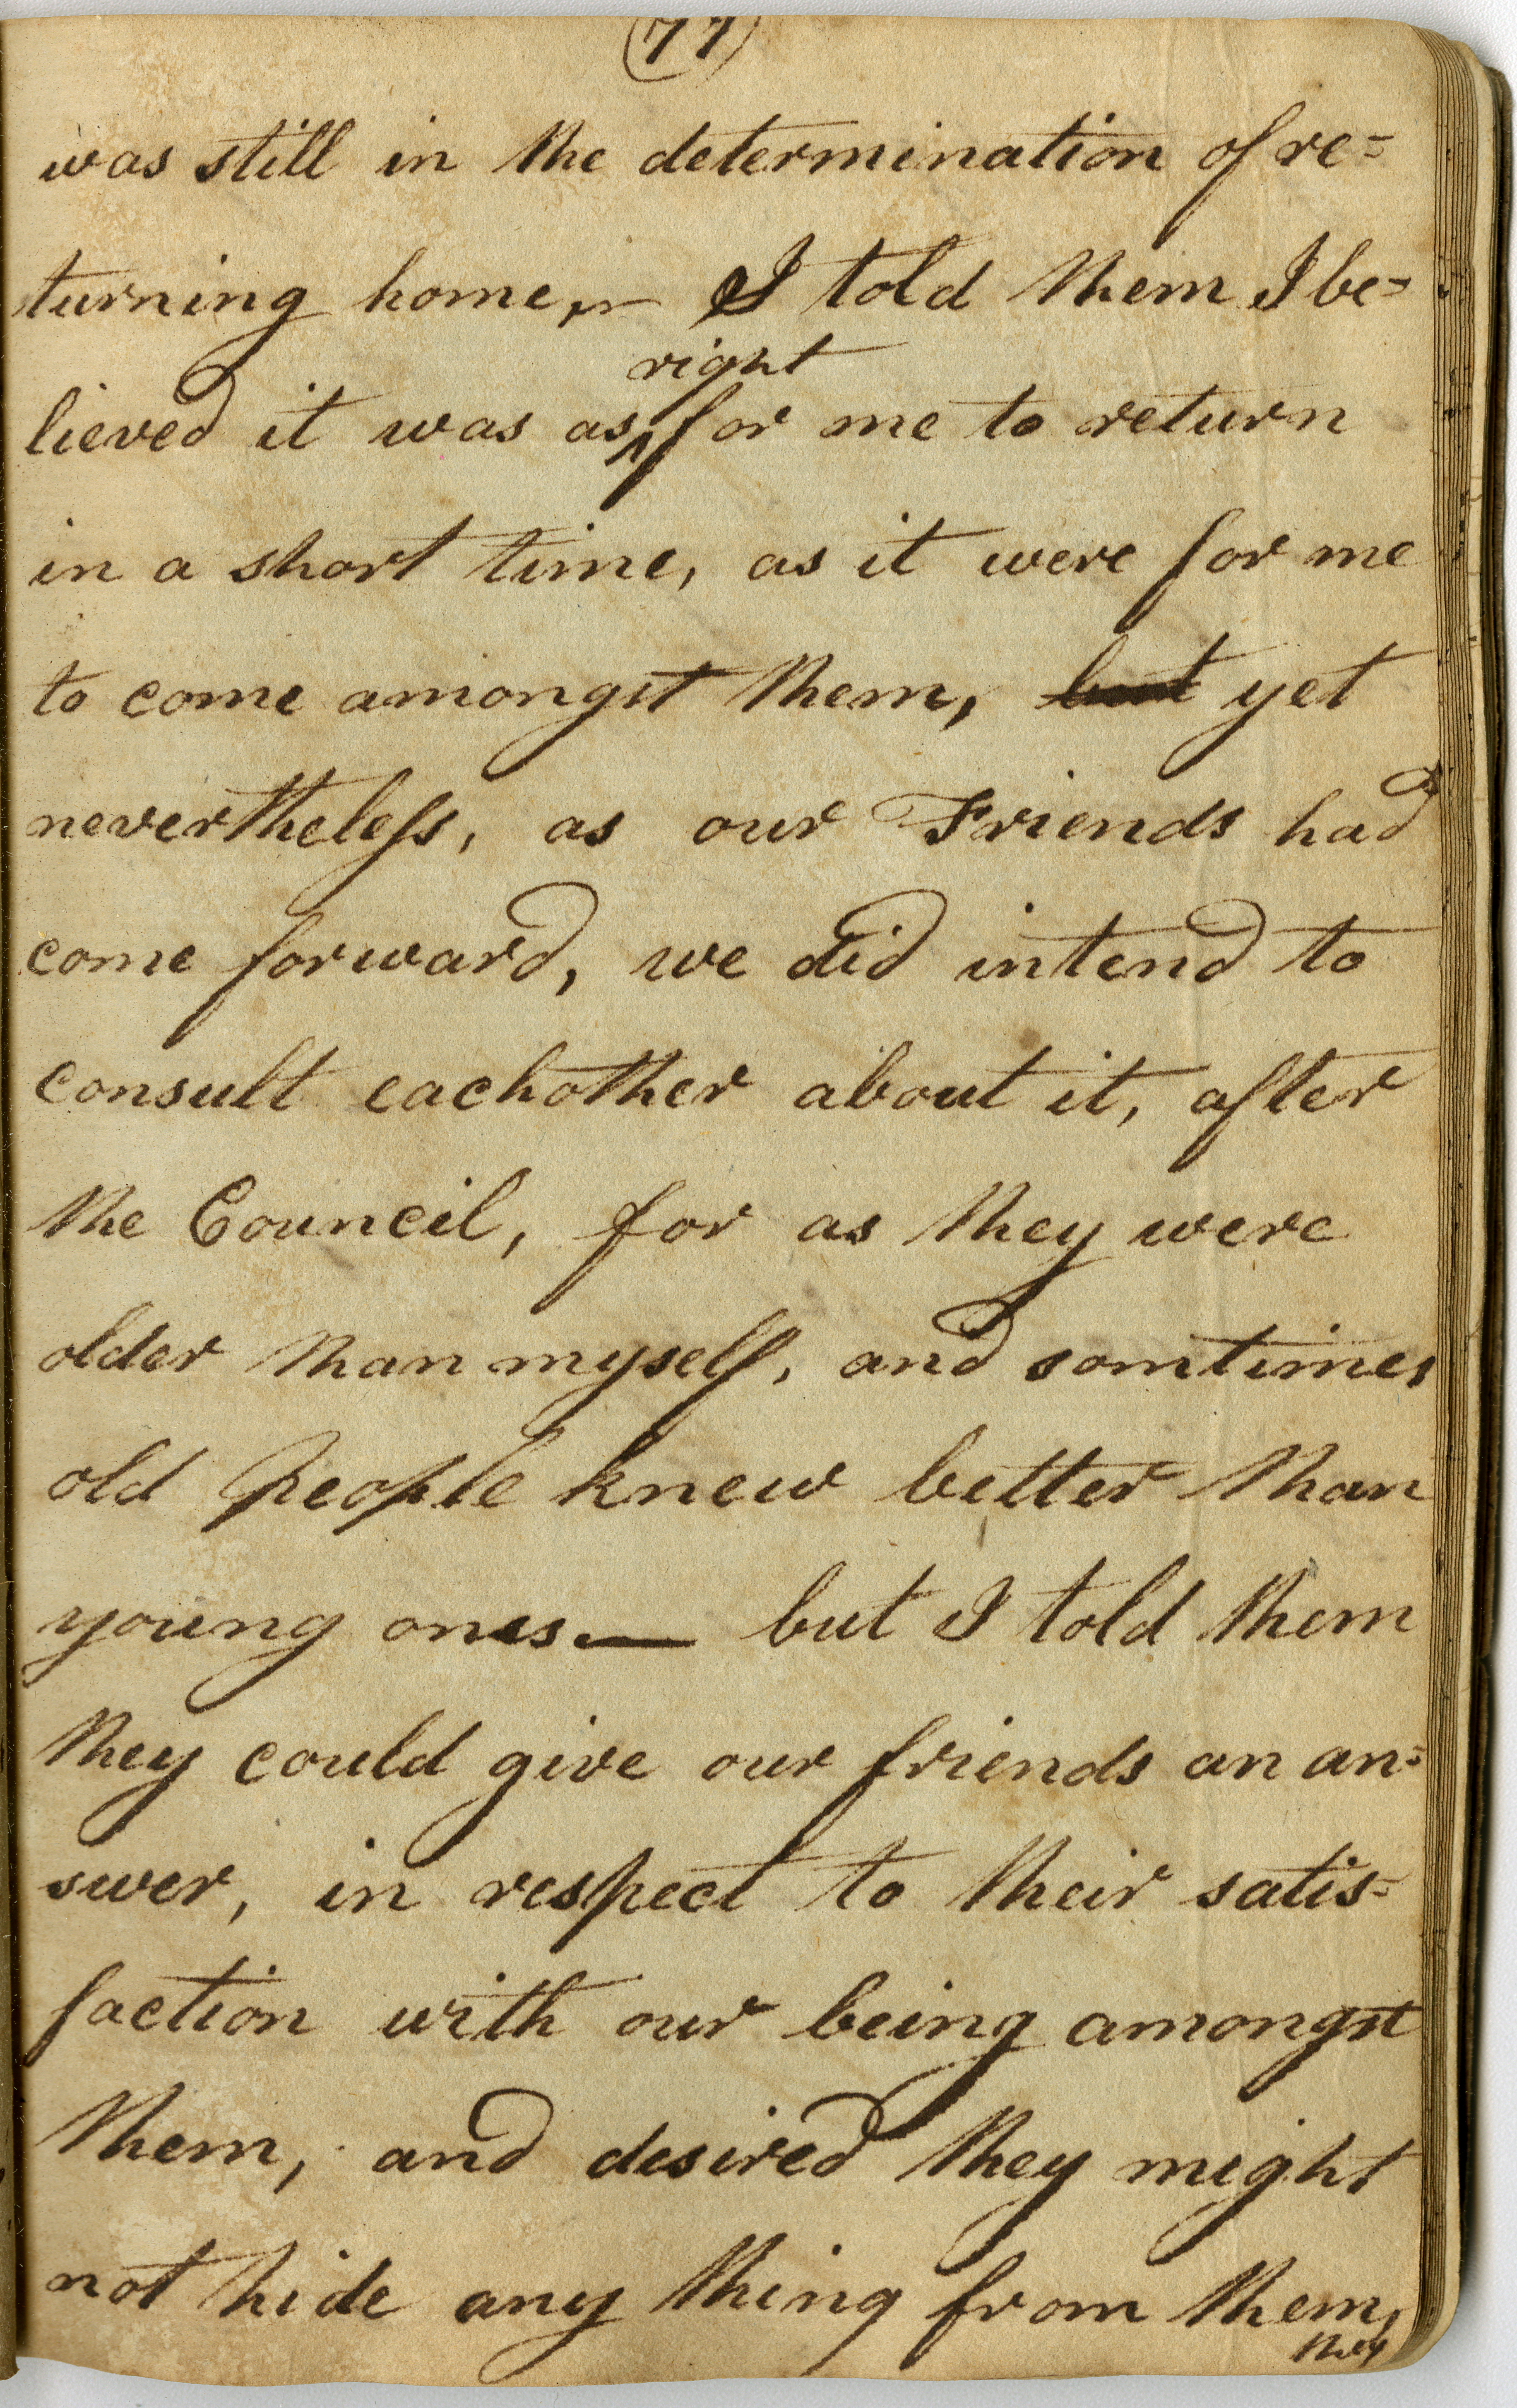 (77)
was still in the determination of re=
turning home, — I told them I be=
right
lieved it was as ^ for me to return
in a short time, as it were for me
to come amongst them, but yet
nevertheless, as our Friends had
come forward, we did intend to
consult eachother about it, after
the Council, for as they were
older than myself, and somtimes
old people knew better than
young ones — but I told them
they could give our friends an an=
swer, in respect to their satis=
faction with our being amongst
them, and desired they might
not hide any thing from them,
they